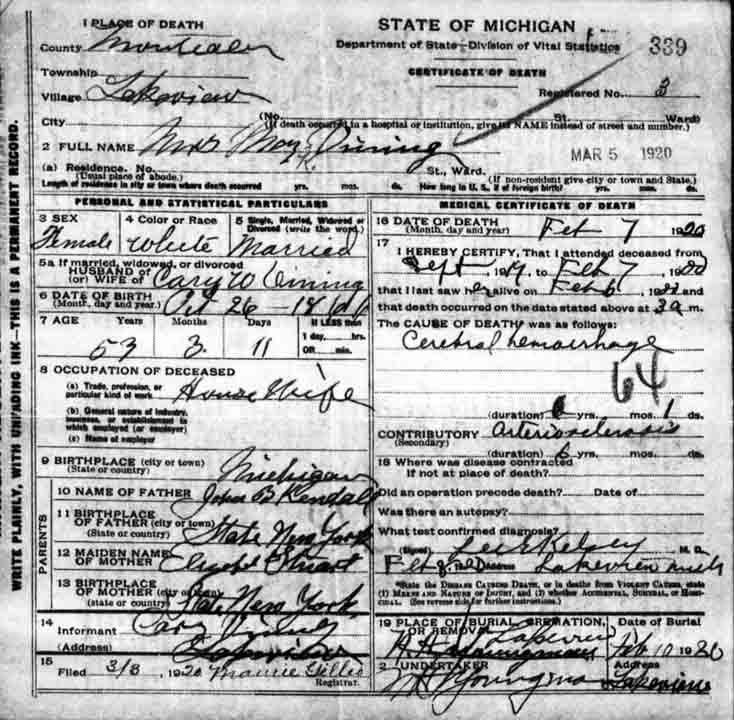 WRITE PLAINLY, WITH UNFADING INK—THIS IS A PERMANENT RECORD.
1 PLACE OF DEATH
County Montcalm
Township
Village Lakeview
City (No. St. Ward)
(If death occurred in a hospital or institution, give its NAME instead of street and number.)
STATE OF MICHIGAN
Department of State—Division of Vital Statistics
339
CERTIFICATE OF DEATH
Registered No. 3
2 FULL NAME Mrs May K. Vining
MAR 5 1920
(a) Residence. No. St., Ward.
(Usual place of abode.) (If non-resident give city or town and State.)
Length of residence in city or town where death occurred yrs. mos. ds. How long in U. S., if of foreign birth? yrs. mos. ds.
PERSONAL AND STATISTICAL PARTICULARS
3 SEX
Female
4 Color or Race
White
5 Single, Married, Widowed or Divorced (write the word.)
Married
5a If married, widowed, or divorced
HUSBAND of
(or) WIFE of Cary W Vining
6 DATE OF BIRTH
(Month, day and year.) Oct 26 - 1866
7 AGE Years Months Days If LESS than
1 day, hrs.
OR min.
53 3 11
8 OCCUPATION OF DECEASED
(a) Trade, profession, or
particular kind of work House Wife
(b) General nature of industry,
business, or establishment in
which employed (or employer)
(c) Name of employer
9 BIRTHPLACE (city or town)
(State or country) Michigan
PARENTS
10 NAME OF FATHER John B Kendall
11 BIRTHPLACE
OF FATHER (city or town)
(State or country) State New York
12 MAIDEN NAME
OF MOTHER Stuart
13 BIRTHPLACE
OF MOTHER (city or town)
(State or country) State New York
14
Informant Cary Vining
(Address) Lakeview
15
Filed 3/3, 1920 Gillis
Registrar.
MEDICAL CERTIFICATE OF DEATH
16 DATE OF DEATH
(Month, day and year) Feb 7 1920
17
I HEREBY CERTIFY, That I attended deceased from
Sept 1919, to Feb 7, 1920
that I last saw her alive on Feb 6, 1920 and
that death occurred on the date stated above at 3 a m.
The CAUSE OF DEATH was as follows:
Cerebral hemorrhage
64
(duration) yrs. mos. 1 ds.
CONTRIBUTORY Arteriosclerosis
(Secondary)
(duration) 6 yrs. mos. ds.
18 Where was disease contracted
If not at place of death?
Did an operation precede death? Date of
Was there an autopsy?
What test confirmed diagnosis?
(Signed) Kelsey M. D.
Feb Address Lakeview Mich
*State the DISEASE CAUSING DEATH, or in deaths from VIOLENT CAUSES, state
(1) MEANS AND NATURE OF INJURY, and (2) whether ACCIDENTAL, SUICIDAL, or HOMI-
CIDAL. (See reverse side for further instructions.)
19 PLACE OF BURIAL, CREMATION, OR REMOVAL
Lakeview
Date of Burial
Feb 10 1920
2 UNDERTAKER
Youngman
Address
Lakeview